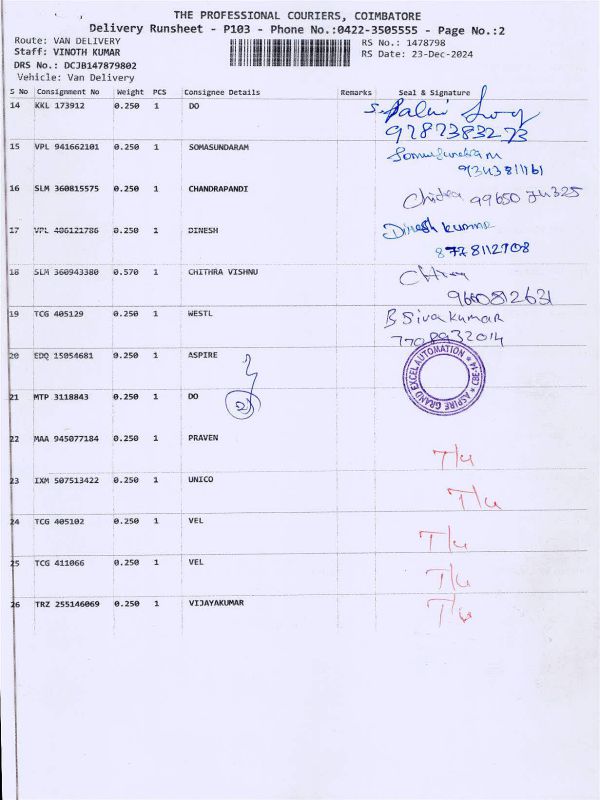 THE PROFESSIONAL COURIERS, COIMBATORE
Delivery Runsheet - P103 - Phone No.:0422-3505555 - Page No.:2
Route: VAN DELIVERY RS No.: 1478798
Staff: VINOTH KUMAR RS Date: 23-Dec-2024
DRS No.: DCJB147879802
Vehicle: Van Delivery
S No Consignment No Weight PCS Consignee Details Remarks Seal & Signature
14 KKL 173912 0.250 1 DO
9787383273
15 VPL 941662101 0.250 1 SOMASUNDARAM Somasundaram
16 SLM 360815575 0.250 1 CHANDRAPANDI Chitra 99650 74325
17 VPL 406121786 0.250 1 DINESH Dinesh kumar
8778112708
18 SLM 360943380 0.570 1 CHITHRA VISHNU
9600812631
19 TCG 405129 0.250 1 WESTL B Sivakumar
7708932014
20 EDQ 15054681 0.250 1 ASPIRE
ASPIRE GRAND EXCEL AUTOMATION * CBE-14 *
21 MTP 3118843 0.250 1 DO
2)
22 MAA 945077184 0.250 1 PRAVEN T/u
23 IXM 507513422 0.250 1 UNICO T/u
24 TCG 405102 0.250 1 VEL T/u
25 TCG 411066 0.250 1 VEL T/u
26 TRZ 255146069 0.250 1 VIJAYAKUMAR T/u